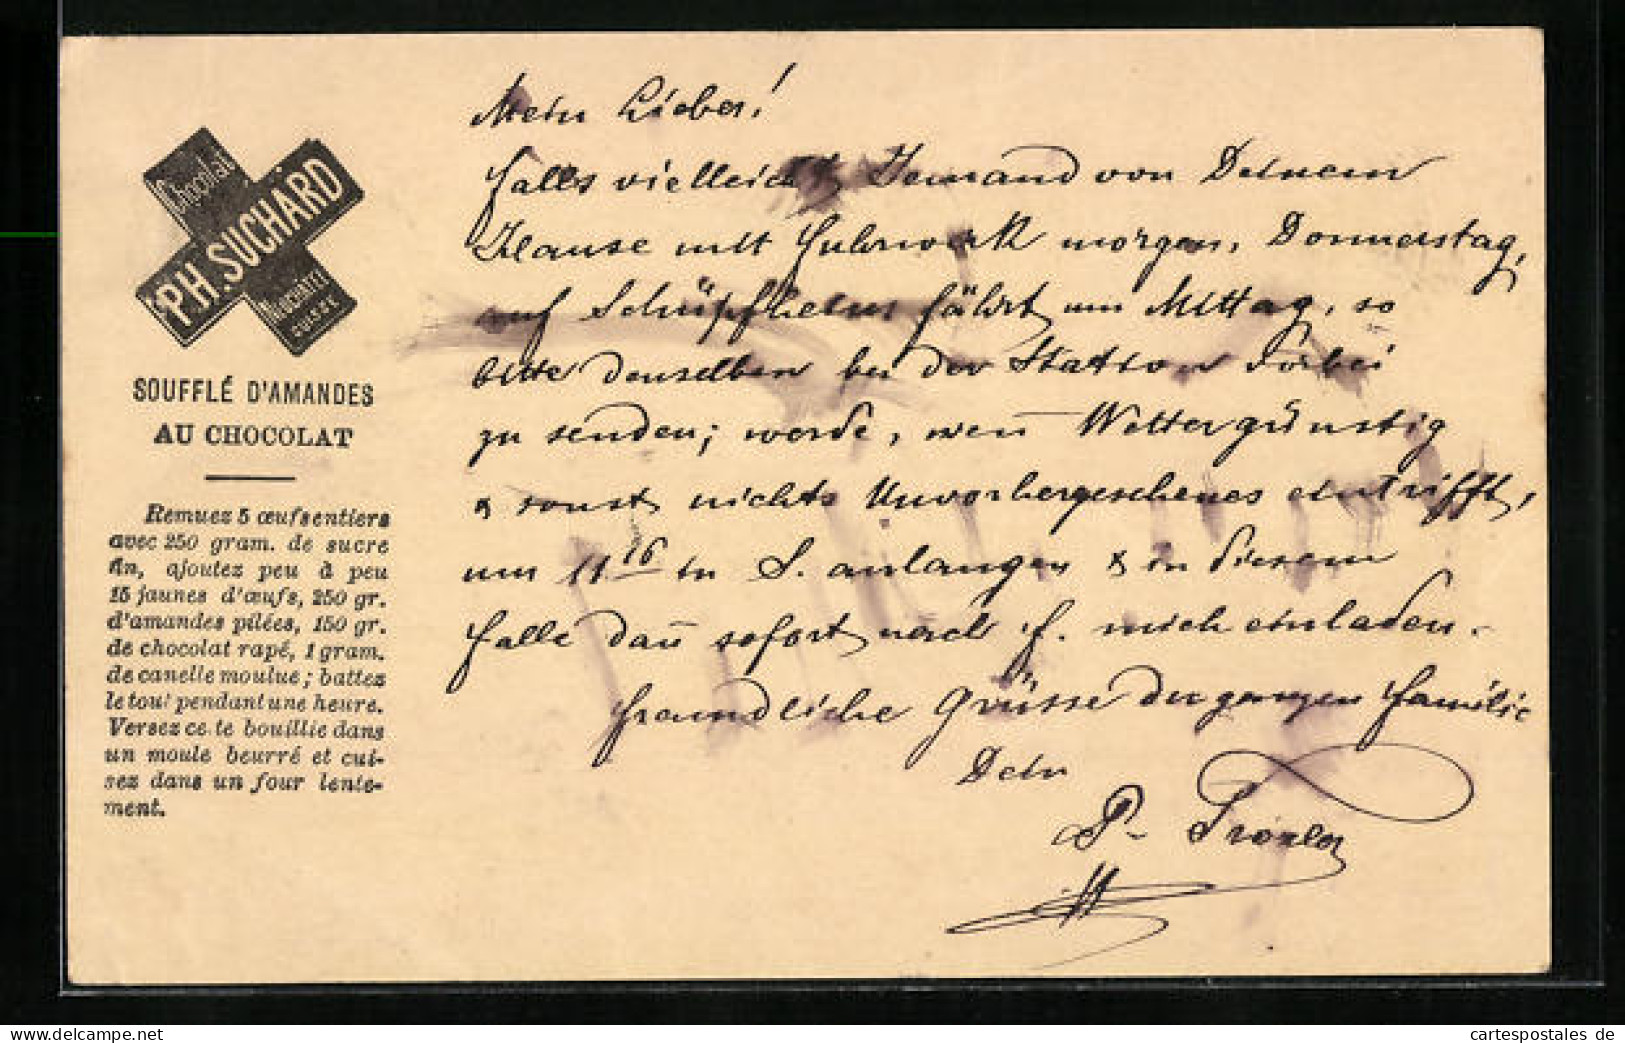 Chocolat
PH. SUCHARD
NEUCHATEL
SUISSE
SOUFFLÉ D'AMANDES
AU CHOCOLAT
Remuez 5 œufs entiers
avec 250 gram. de sucre
fin, ajoutez peu à peu
15 jaunes d'œufs, 250 gr.
d'amandes pilées, 150 gr.
de chocolat rapé, 1 gram.
de canelle moulue; battez
le tout pendant une heure.
Versez ce te bouillie dans
un moule beurré et cui-
sez dans un four lente-
ment.
Mein Lieber!
Falls vielleicht Jemand von Deinem
Hause mit Fuhrwerk morgen, Donnerstag,
auf Schüpfheim fährt um Mittag, so
bitte denselben bei der Station vorbei
zu senden; werde, wen̄ Wetter günstig
& sonst nichts Unvorhergesehenes eintrifft,
um 11 16 in S. anlangen & in diesem
Falle dan̄ sofort nach f. mich einladen.
Freundliche Grüsse der ganzen Familie
Dein
P.
cartespostales de